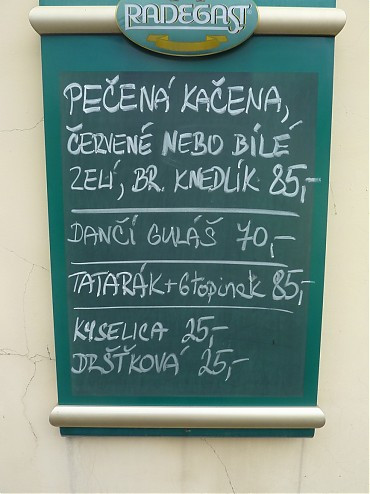 RADEGAST
PEČENÁ KAČENA,
ČERVENÉ NEBO BÍLÉ
ZELÍ, BR. KNEDLÍK 85,-
DANČÍ GULÁŠ 70,-
TATARÁK+6topinek 85,-
KYSELICA 25,-
DRŠŤKOVÁ 25,-